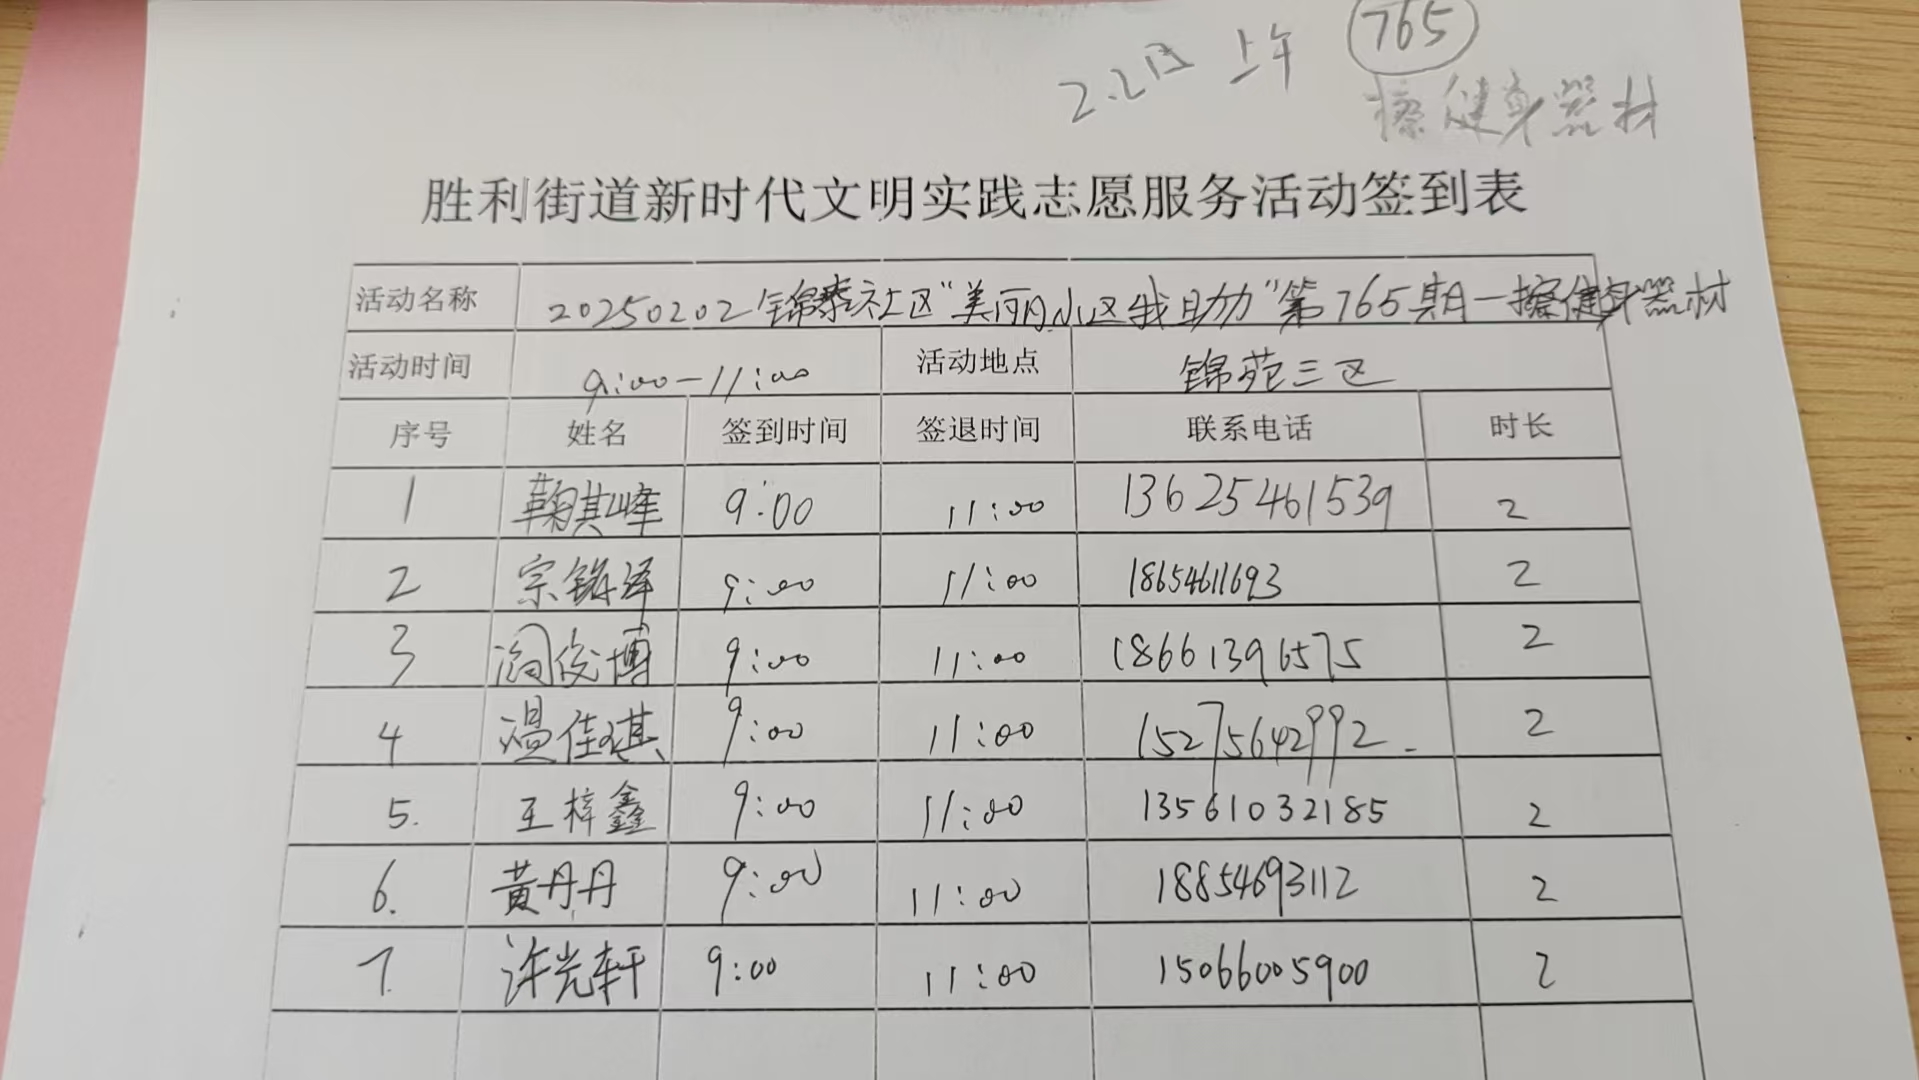 765
2.2日 上午
擦健身器材
胜利街道新时代文明实践志愿服务活动签到表
活动名称 20250202锦泰社区“美丽小区我助力”第765期—擦健身器材
活动时间 9:00-11:00 活动地点 锦苑三区
序号 姓名 签到时间 签退时间 联系电话 时长
1 鞠其峰 9:00 11:00 13625461539 2
2 宗铭泽 9:00 11:00 18654611693 2
3 阎俊博 9:00 11:00 18661396575 2
4 温佳琪 9:00 11:00 15275642992 2
5. 王梓鑫 9:00 11:00 13561032185 2
6. 黄丹丹 9:00 11:00 18854693112 2
7. 许光轩 9:00 11:00 15066005900 2